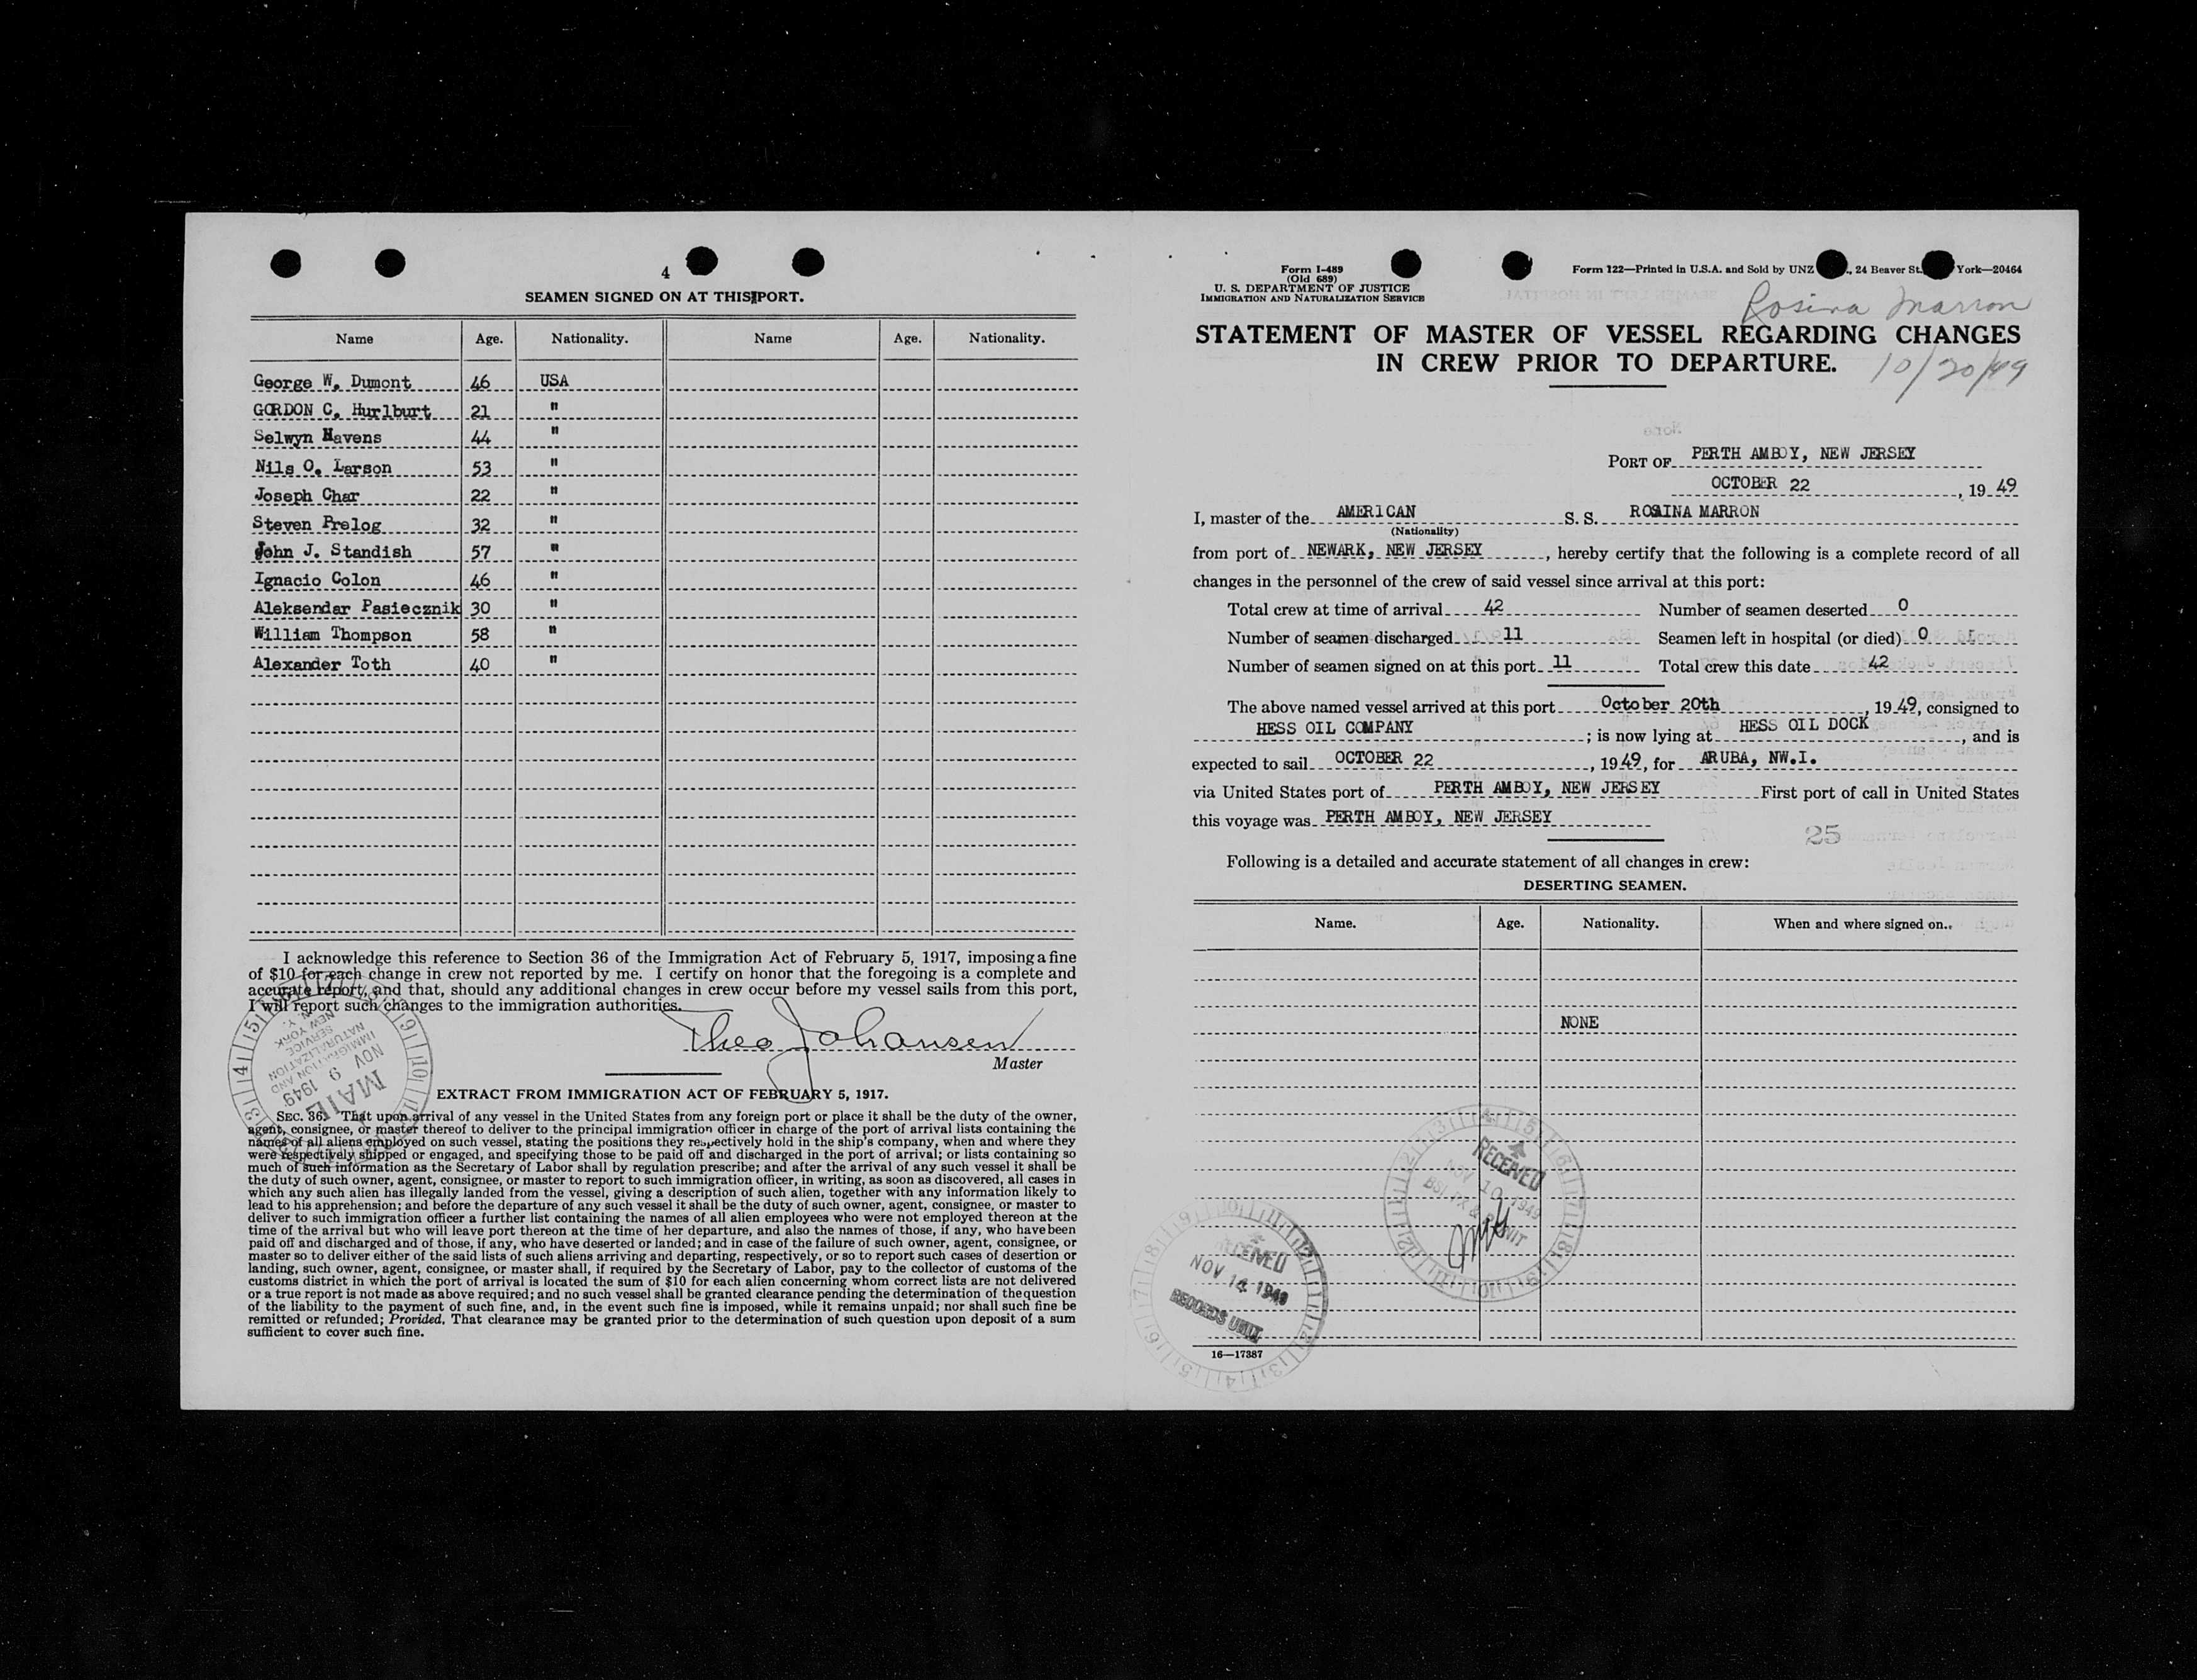 4
SEAMEN SIGNED ON AT THIS PORT.
Name Age. Nationality. Name Age. Nationality.
George W. Dumont 46 USA
GORDON C. Hurlburt 21 "
Selwyn Havens 44 "
Nils O. Larson 53 "
Joseph Char 22 "
Steven Prelog 32 "
John J. Standish 57 "
Ignacio Colon 46 "
Aleksendar Pasiecznik 30 "
William Thompson 58 "
Alexander Toth 40 "
I acknowledge this reference to Section 36 of the Immigration Act of February 5, 1917, imposing a fine
of $10 for each change in crew not reported by me. I certify on honor that the foregoing is a complete and
accurate report, and that, should any additional changes in crew occur before my vessel sails from this port,
I will report such changes to the immigration authorities.
Theo Johansen
Master
MAIL
NOV 9 1949
IMMIGRATION AND
NATURALIZATION
SERVICE
NEW YORK
N. Y.
EXTRACT FROM IMMIGRATION ACT OF FEBRUARY 5, 1917.
SEC. 36. That upon arrival of any vessel in the United States from any foreign port or place it shall be the duty of the owner,
agent, consignee, or master thereof to deliver to the principal immigration officer in charge of the port of arrival lists containing the
names of all aliens employed on such vessel, stating the positions they respectively hold in the ship's company, when and where they
were respectively shipped or engaged, and specifying those to be paid off and discharged in the port of arrival; or lists containing so
much of such information as the Secretary of Labor shall by regulation prescribe; and after the arrival of any such vessel it shall be
the duty of such owner, agent, consignee, or master to report to such immigration officer, in writing, as soon as discovered, all cases in
which any such alien has illegally landed from the vessel, giving a description of such alien, together with any information likely to
lead to his apprehension; and before the departure of any such vessel it shall be the duty of such owner, agent, consignee, or master to
deliver to such immigration officer a further list containing the names of all alien employees who were not employed thereon at the
time of the arrival but who will leave port thereon at the time of her departure, and also the names of those, if any, who have been
paid off and discharged and of those, if any, who have deserted or landed; and in case of the failure of such owner, agent, consignee, or
master so to deliver either of the said lists of such aliens arriving and departing, respectively, or so to report such cases of desertion or
landing, such owner, agent, consignee, or master shall, if required by the Secretary of Labor, pay to the collector of customs of the
customs district in which the port of arrival is located the sum of $10 for each alien concerning whom correct lists are not delivered
or a true report is not made as above required; and no such vessel shall be granted clearance pending the determination of the question
of the liability to the payment of such fine, and, in the event such fine is imposed, while it remains unpaid; nor shall such fine be
remitted or refunded; Provided, That clearance may be granted prior to the determination of such question upon deposit of a sum
sufficient to cover such fine.
Form I-489
(Old 689)
U. S. DEPARTMENT OF JUSTICE
IMMIGRATION AND NATURALIZATION SERVICE
Form 122—Printed in U.S.A. and Sold by UNZ ., 24 Beaver St. York—20464
Rosina Marron
STATEMENT OF MASTER OF VESSEL REGARDING CHANGES
IN CREW PRIOR TO DEPARTURE.
10/20/49
PORT OF PERTH AMBOY, NEW JERSEY
OCTOBER 22, 19 49
I, master of the AMERICAN S. S. ROSINA MARRON
(Nationality)
from port of NEWARK, NEW JERSEY, hereby certify that the following is a complete record of all
changes in the personnel of the crew of said vessel since arrival at this port:
Total crew at time of arrival 42 Number of seamen deserted 0
Number of seamen discharged 11 Seamen left in hospital (or died) 0
Number of seamen signed on at this port 11 Total crew this date 42
The above named vessel arrived at this port October 20th, 19 49, consigned to
HESS OIL COMPANY; is now lying at HESS OIL DOCK, and is
expected to sail OCTOBER 22, 19 49, for ARUBA, NW.I.
via United States port of PERTH AMBOY, NEW JERSEY First port of call in United States
this voyage was PERTH AMBOY, NEW JERSEY
25
Following is a detailed and accurate statement of all changes in crew:
DESERTING SEAMEN.
Name. Age. Nationality. When and where signed on.
NONE
RECEIVED
NOV 10 1949
RECEIVED
NOV 14 1949
RECORDS UNIT
16—17387